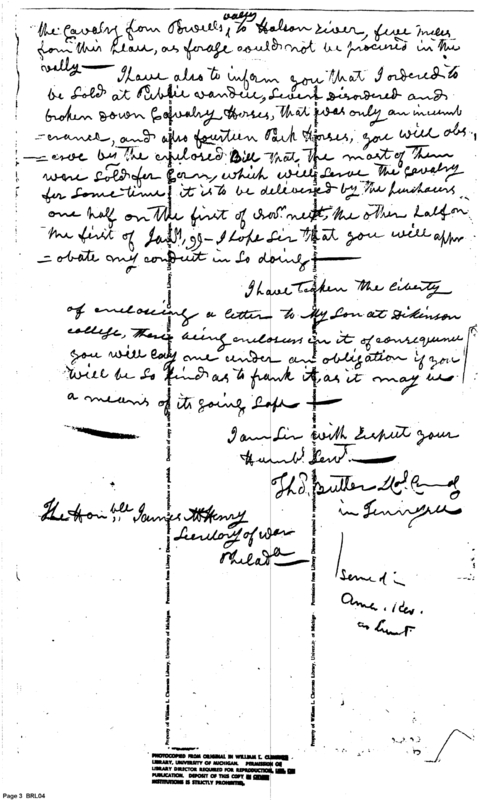 the Cavalry from Powells valy, to Holson River, five miles
from this place, as forage could not be procured in the
vally —
I have also to inform you that I ordered to
be Sold at Public vandue, Seven Disordered and
broken down Cavalry Horses, that was only an incumb
=erance, and also fourteen Pack Horses, you will obs
=erve by the enclosed Bill that the most of them
were Sold for Corn, which will Serve the Cavalry
for Some time, it is to be delivered by the purchasers
one half on the first of Novr. next, the other half on
the first of Jany. 99 — I hope Sir that you will appr
=obate my conduct in So doing —
I have Taken the liberty
of enclosing a letter to My Son at Dikinson
college, there being enclosures in it of consequence
you will lay me under an obligation if you
will be So kind as to frank it, as it may be
a means of its going Safe —
I am Sir with Respect your
Humbl. Servt. —
Thos. Butler Comdg
in Tennessee
The Honble. James McHenry
Secretary of War
Philada
served in
Amer. Rev.
as Lieut
Property of William L. Clements Library, University of Michigan
Permission from Library Director required to reproduce or publish.
Deposit of copy in other
PHOTOCOPIED FROM ORIGINAL IN WILLIAM L. CLEMENTS
LIBRARY, UNIVERSITY OF MICHIGAN. PERMISSION OF
LIBRARY DIRECTOR REQUIRED FOR REPRODUCTION, USE, OR
PUBLICATION. DEPOSIT OF THIS COPY IN OTHER
INSTITUTIONS IS STRICTLY PROHIBITED.
Page 3 BRL04